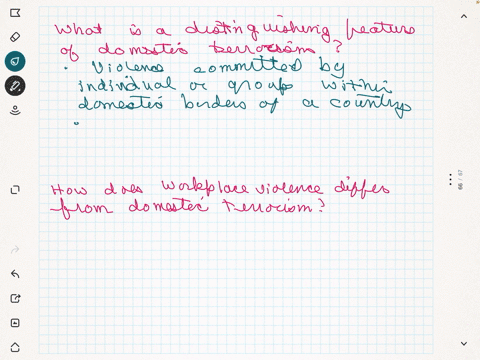 What is a distinguishing feature
of domestic terrorism?
• Violence committed by
individual or groups within
domestic borders of a country
•
How does workplace violence differ
from domestic terrorism?
66 / 67